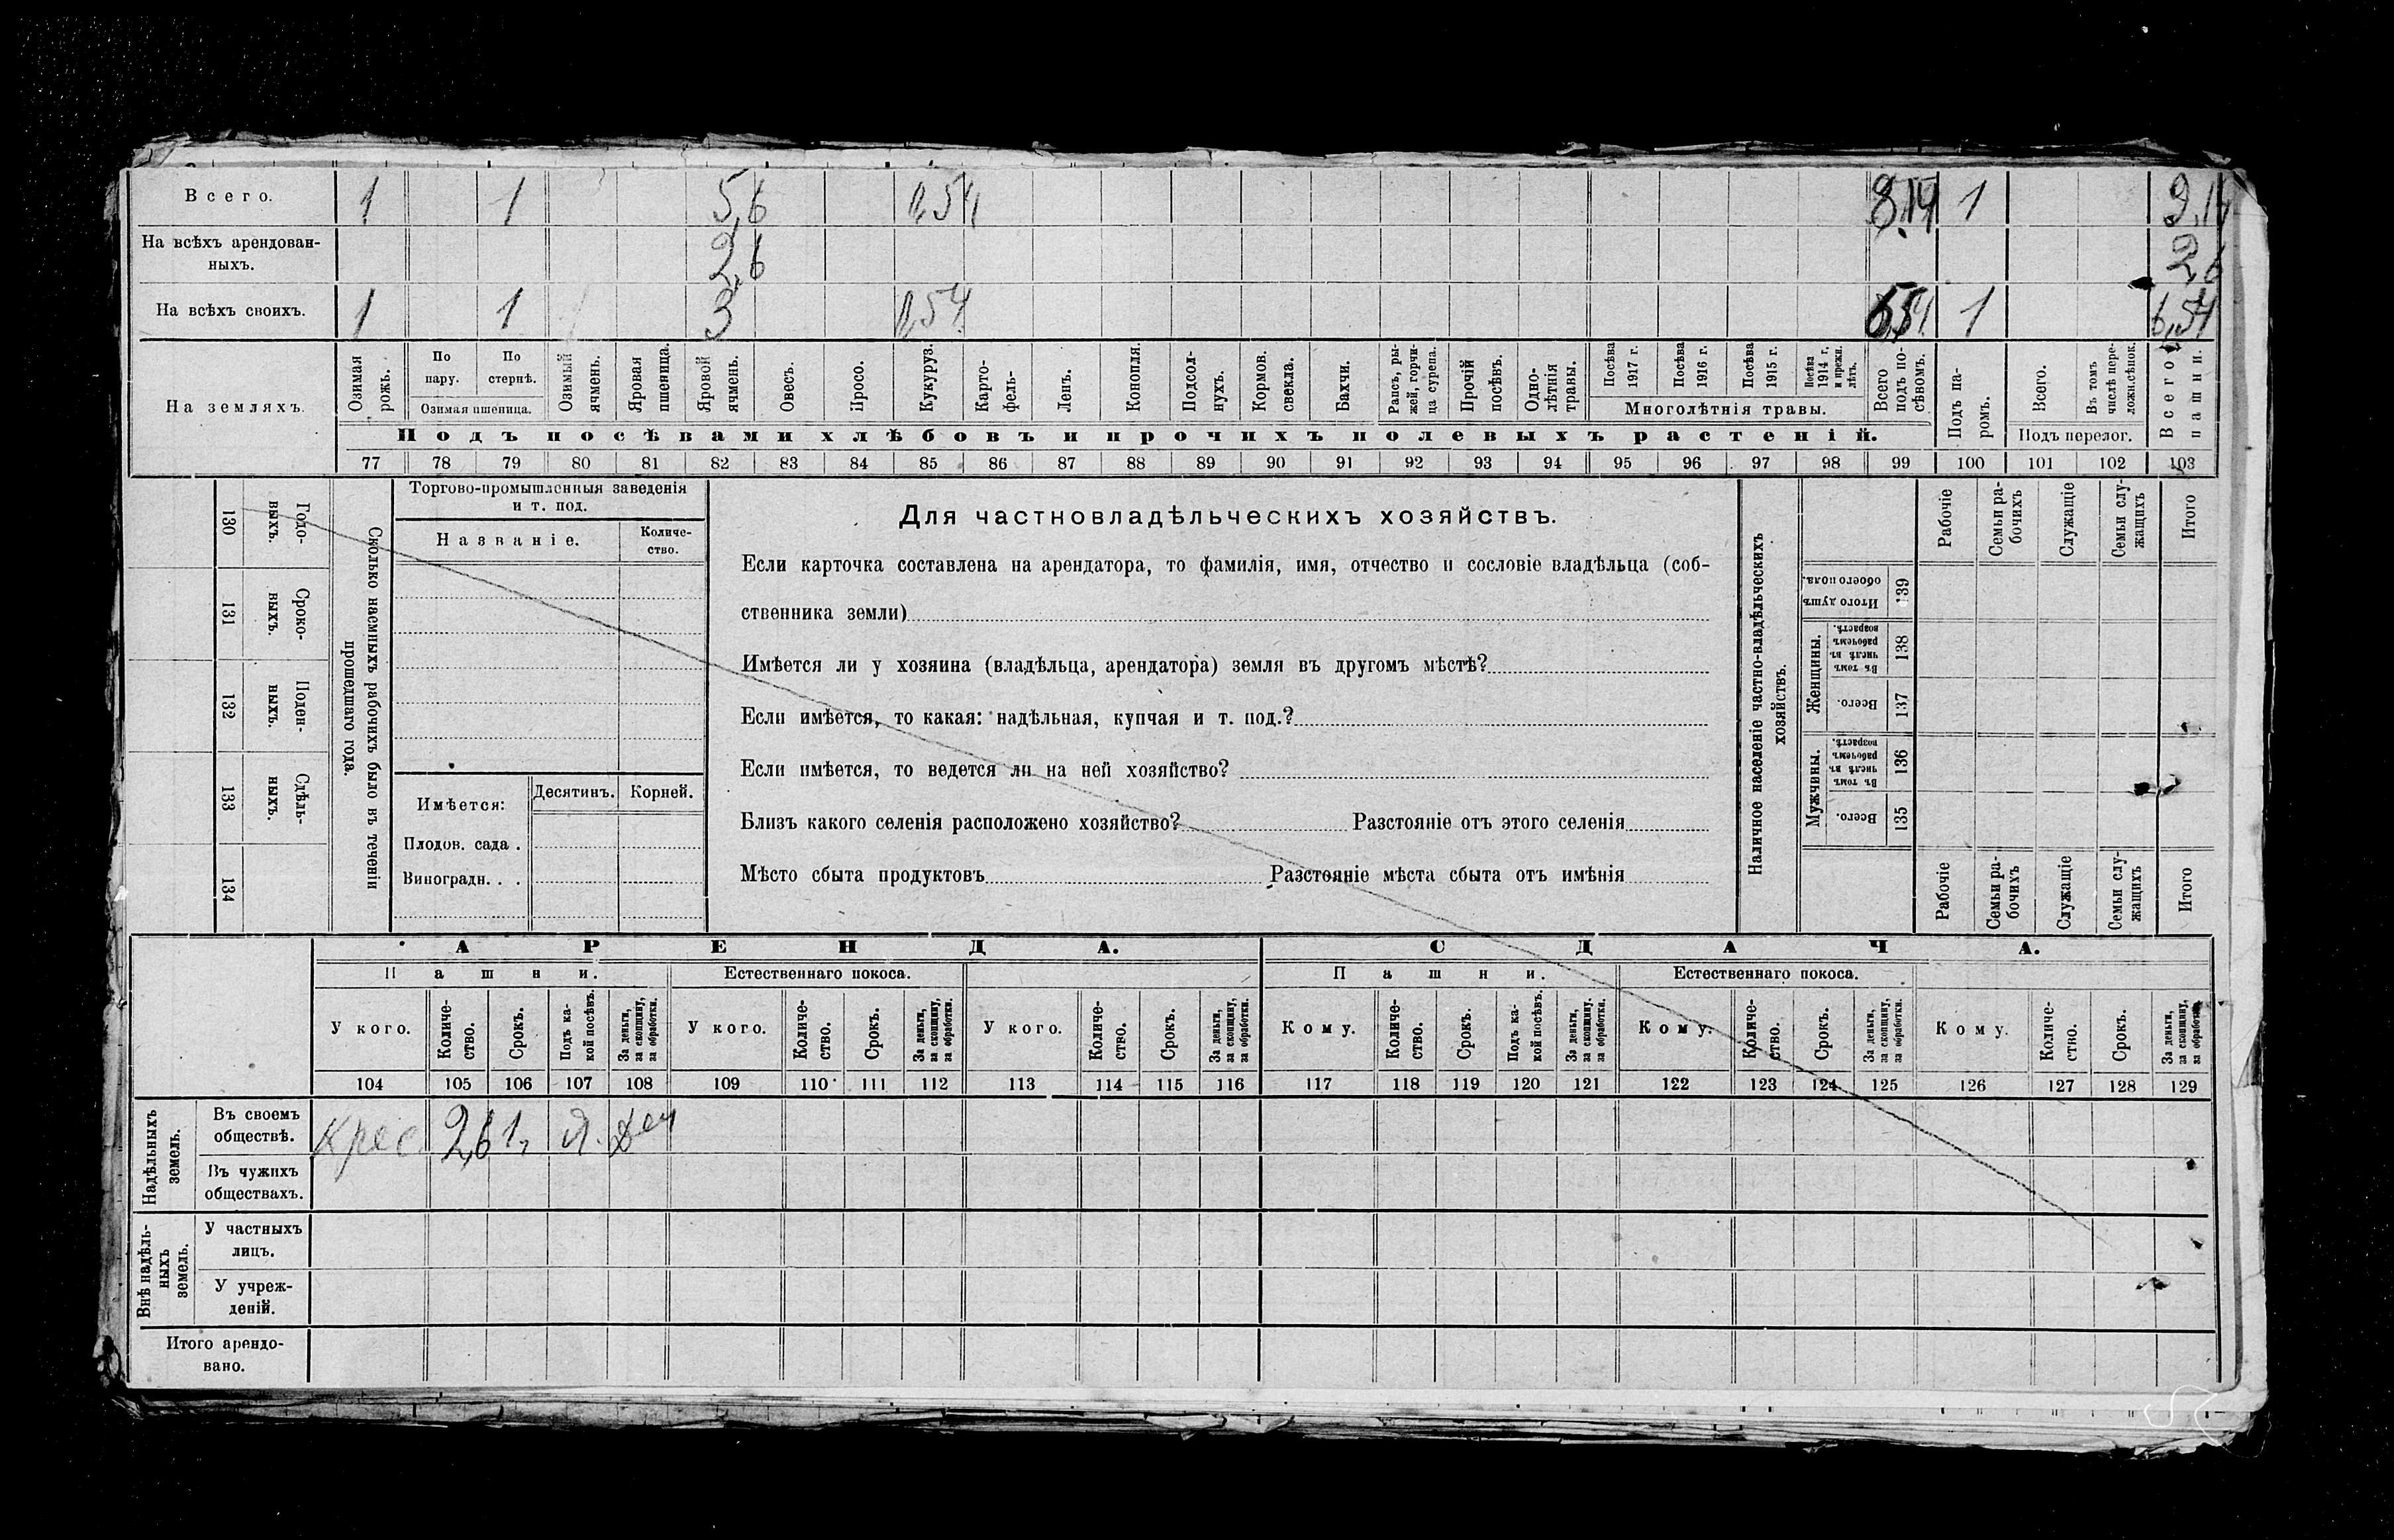 Всего. 1 1 5,6 0,54 8,14 1 9,14
На всѣхъ арендован-
ныхъ. 2,6 2,6
На всѣхъ своихъ. 1 1 3 0,54 5,54 1 6,54
На земляхъ.
Озимая
рожь.
По
пару.
По
стернѣ.
Озимая пшеница.
Озимый
ячмень.
Яровая
пшеница.
Яровой
ячмень.
Овесъ.
Просо.
Кукуруз.
Карто-
фель-
Ленъ.
Конопля.
Подсол-
нухъ.
Кормов.
свекла.
Бахчи.
Рапсъ, ры-
жей, горчи-
ца сурепа.
Прочій
посѣвъ.
Одно-
лѣтнія
травы.
Посѣва
1917 г.
Посѣва
1916 г.
Посѣва
1915 г.
Посѣва
1914 г.
и прежн.
лѣтъ.
Многолѣтнія травы.
Всего
подъ по-
сѣвомъ.
Подъ па-
ромъ.
Всего.
Въ томъ
числѣ пере-
лож.сѣнок.
Подъ перелог.
Всего
пашни.
Подъ посѣвами хлѣбовъ и прочихъ полевыхъ растеній.
77 78 79 80 81 82 83 84 85 86 87 88 89 90 91 92 93 94 95 96 97 98 99 100 101 102 103
130
Годо-
выхъ.
131
Сроко-
выхъ.
132
Поден-
ныхъ.
133
Сдѣль-
ныхъ.
134
Сколько наемныхъ рабочихъ было въ теченіи
прошедшаго года.
Торгово-промышленныя заведенія
и т. под.
Названіе.
Количе-
ство.
Имѣется:
Десятинъ. Корней.
Плодов. сада .
Виноградн. . .
Для частновладѣльческихъ хозяйствъ.
Если карточка составлена на арендатора, то фамилія, имя, отчество и сословіе владѣльца (соб-
ственника земли)
Имѣется ли у хозяина (владѣльца, арендатора) земля въ другомъ мѣстѣ?
Если имѣется, то какая: надѣльная, купчая и т. под.?
Если имѣется, то ведется ли на ней хозяйство?
Близъ какого селенія расположено хозяйство? Разстояніе отъ этого селенія
Мѣсто сбыта продуктовъ Разстояніе мѣста сбыта отъ имѣнія
Наличное населеніе частно-владѣльческихъ
хозяйствъ.
Рабочіе
Семьи ра-
бочихъ
Служащіе
Семьи слу-
жащихъ
Итого
Итого душъ
обоего пола.
139
Женщины.
Въ томъ
числѣ въ
рабочемъ
возрастѣ.
138
Всего.
137
Мужчины.
Въ томъ
числѣ въ
рабочемъ
возрастѣ.
136
Всего.
135
Рабочіе
Семьи ра-
бочихъ
Служащіе
Семьи слу-
жащихъ
Итого
АРЕНДА. СДАЧА.
Пашни. Естественнаго покоса. Пашни. Естественнаго покоса.
У кого.
Количе-
ство.
Срокъ.
Подъ ка-
кой посѣвъ.
За деньги,
за скопщину,
за обработки.
У кого.
Количе-
ство.
Срокъ.
За деньги,
за скопщину,
за обработки.
У кого.
Количе-
ство.
Срокъ.
За деньги,
за скопщину,
за обработки.
Кому.
Количе-
ство.
Срокъ.
Подъ ка-
кой посѣвъ.
За деньги,
за скопщину,
за обработки.
Кому.
Количе-
ство.
Срокъ.
За деньги,
за скопщину,
за обработки.
Кому.
Количе-
ство.
Срокъ.
За деньги,
за скопщину,
за обработки.
104 105 106 107 108 109 110 111 112 113 114 115 116 117 118 119 120 121 122 123 124 125 126 127 128 129
Надѣльныхъ
земель.
Въ своемъ
обществѣ. Крес. 2,6 1 Я. Ден
Въ чужихъ
обществахъ.
Внѣ надѣль-
ныхъ
земель.
У частныхъ
лицъ.
У учреж-
деній.
Итого арендо-
вано.